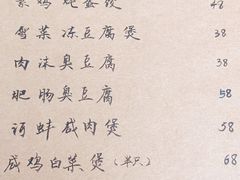 雪菜冻豆腐煲 38
肉沫臭豆腐 38
肥肠臭豆腐 58
河蚌咸肉煲 58
咸鸡白菜煲（半只） 68